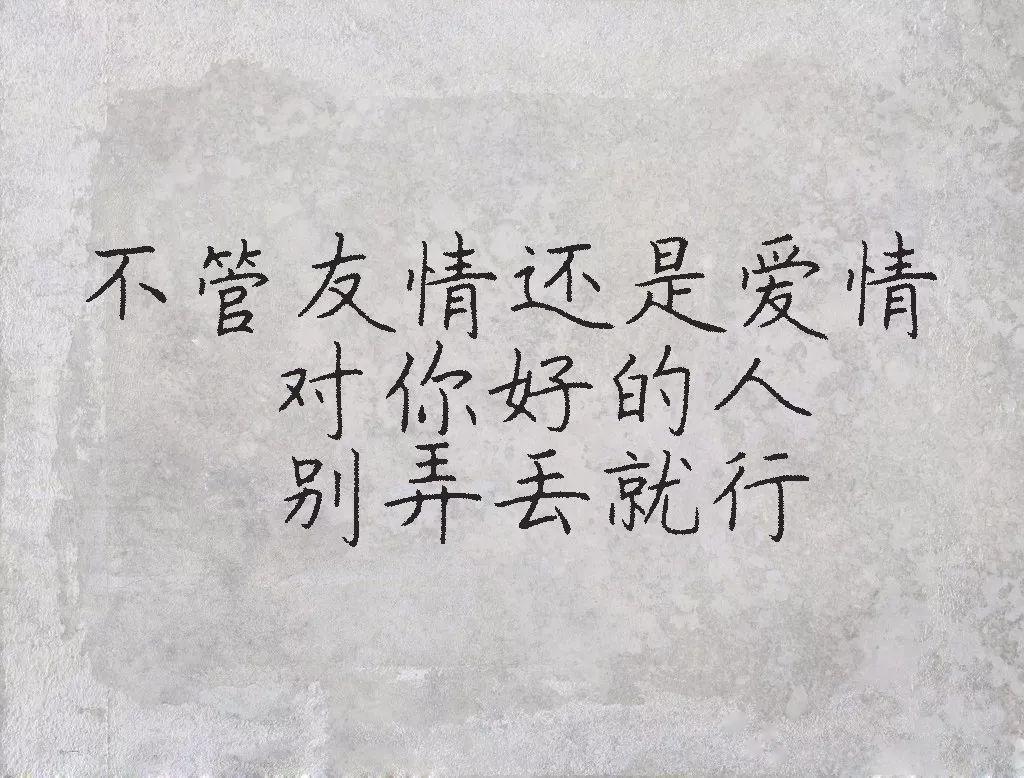 不管友情还是爱情
对你好的人
别弄丢就行